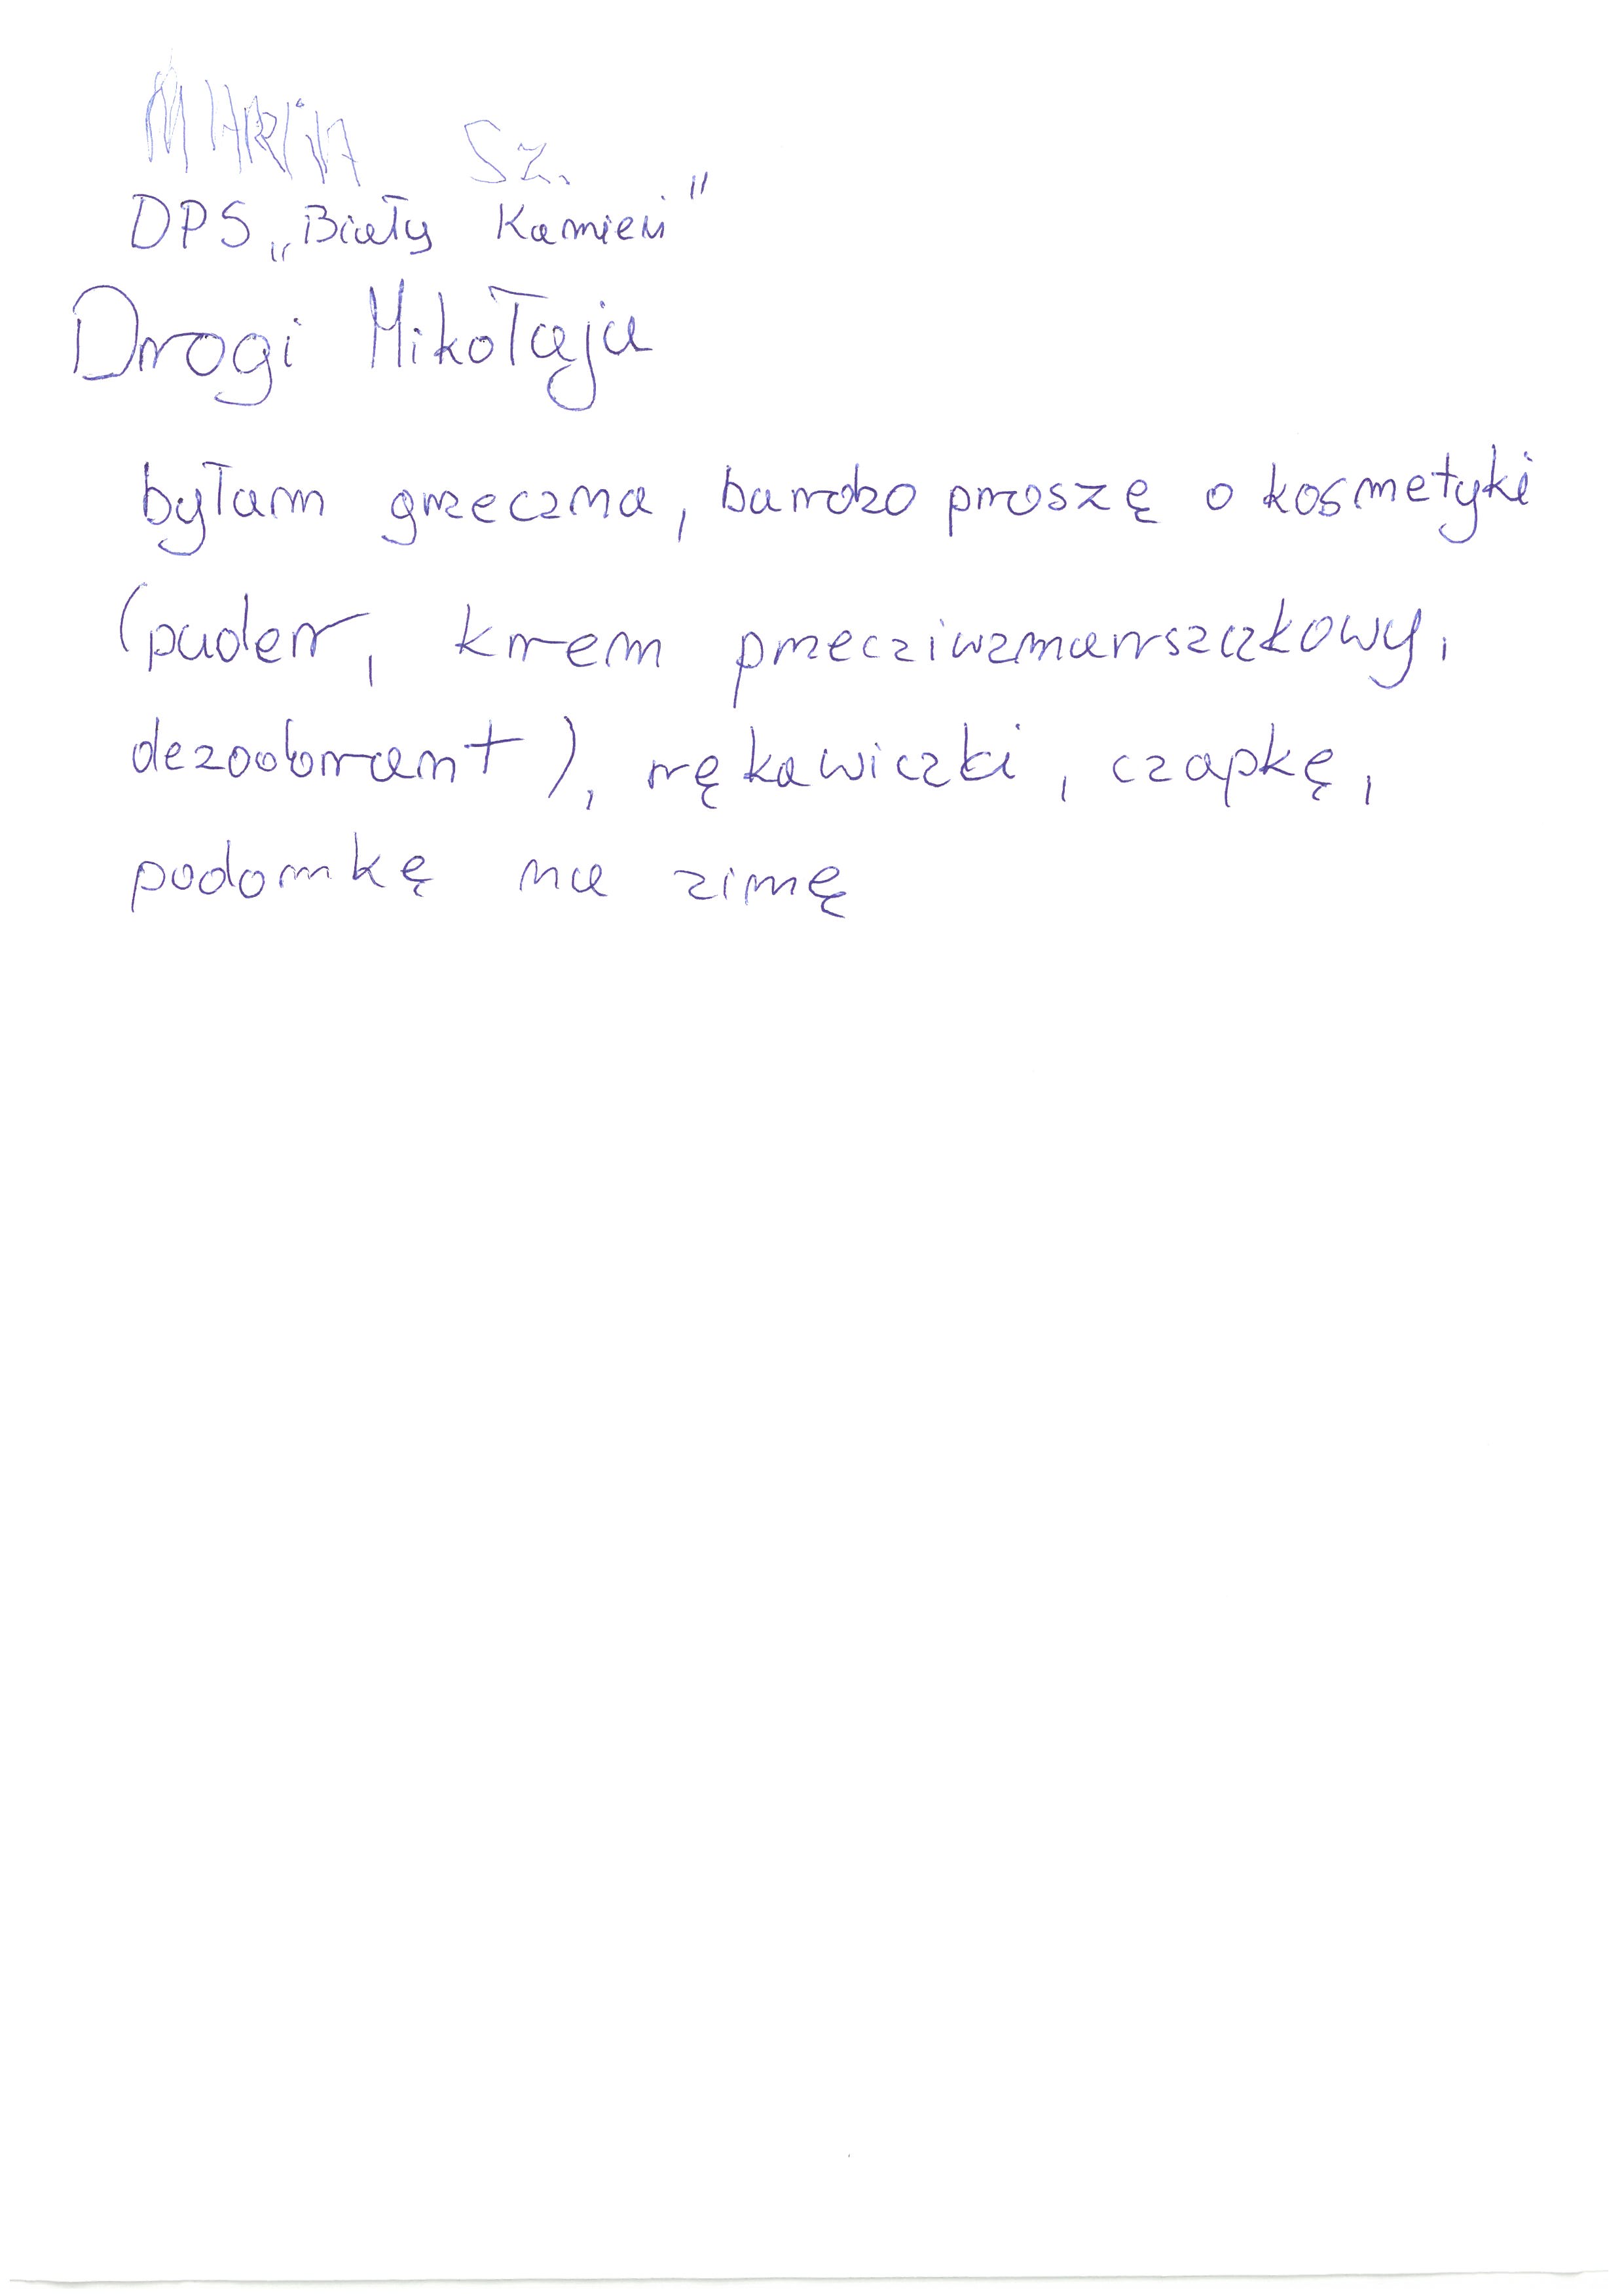 MARIA Sz.
DPS „Biały Kamień"
Drogi Mikołaju
byłam grzeczna, bardzo proszę o kosmetyki
(puder, krem przecziwzmarszczkowy,
dezodorant), rękawiczki, czapkę,
podomkę na zimę